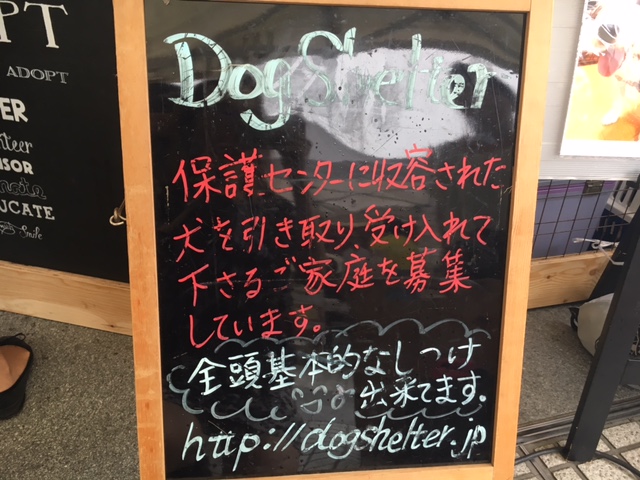 PT
ADOPT
ER
nteer
NSOR
UCATE
Smile
Dog Shelter
保護センターに収容された
犬を引き取り、受け入れて
下さるご家庭を募集
しています。
全頭基本的なしつけ
出来てます。
http://dogshelter.jp